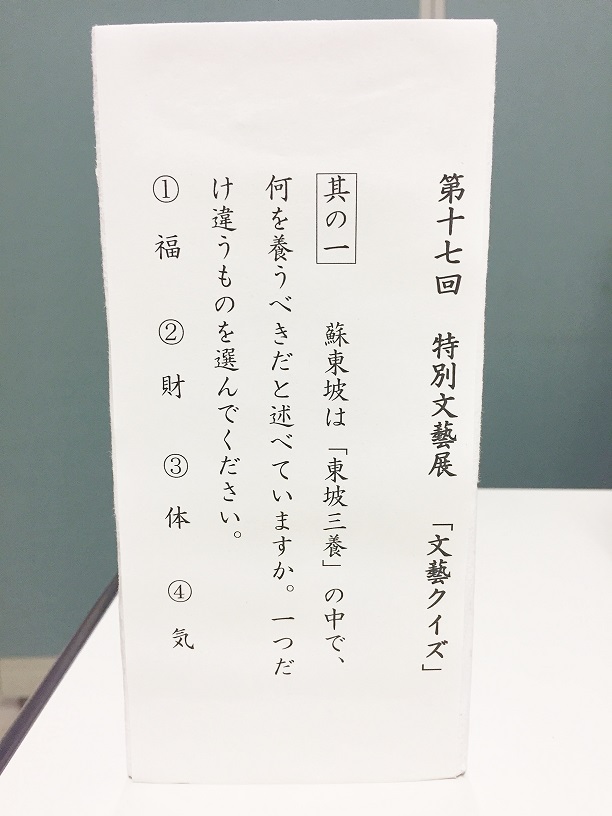 第十七回　特別文藝展　「文藝クイズ」
其の一　蘇東坡は「東坡三養」の中で、
何を養うべきだと述べていますか。一つだ
け違うものを選んでください。
①　福　②　財　③　体　④　気